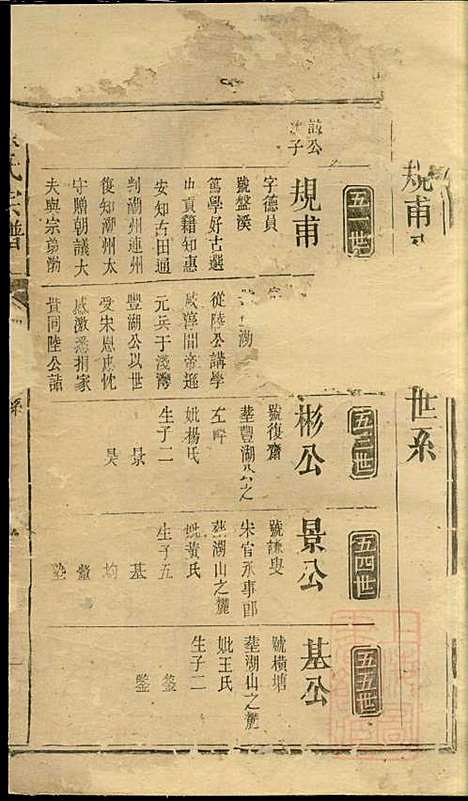 規甫
世系
氏宗譜
五二世
規甫
字德員
號盤溪
篤學好古選
由貢籍知惠
安知古田通
判潮州連州
復知潮州太
守贈朝議大
夫與宗弟渤
從陸公講學
咸淳間帝遜
元兵于淺灣
豐湖公以世
受宋恩忠忱
感激悉捐家
貲同陸公詣
五三世
彬公
號復齋
塟豐湖公之
左畔
妣楊氏
生子二
景
昊
五四世
景公
號謙叟
宋官承事郎
塟湖山之麓
妣黃氏
生子五
基
均
五五世
基公
號橫塘
塟湖山之麓
妣王氏
生子二
鋈
鑒